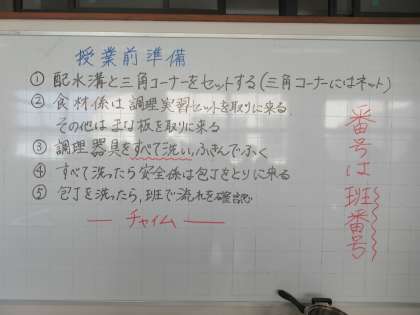 授業前準備
① 配水溝と三角コーナーをセットする(三角コーナーにはネット)
② 食材係は調理実習セットを取りに来る
その他はまな板を取りに来る
③ 調理器具をすべて洗い,ふきんでふく
④ すべて洗ったら安全係は包丁をとりに来る
⑤ 包丁を洗ったら,班で流れを確認
チャイム
番号は班番号